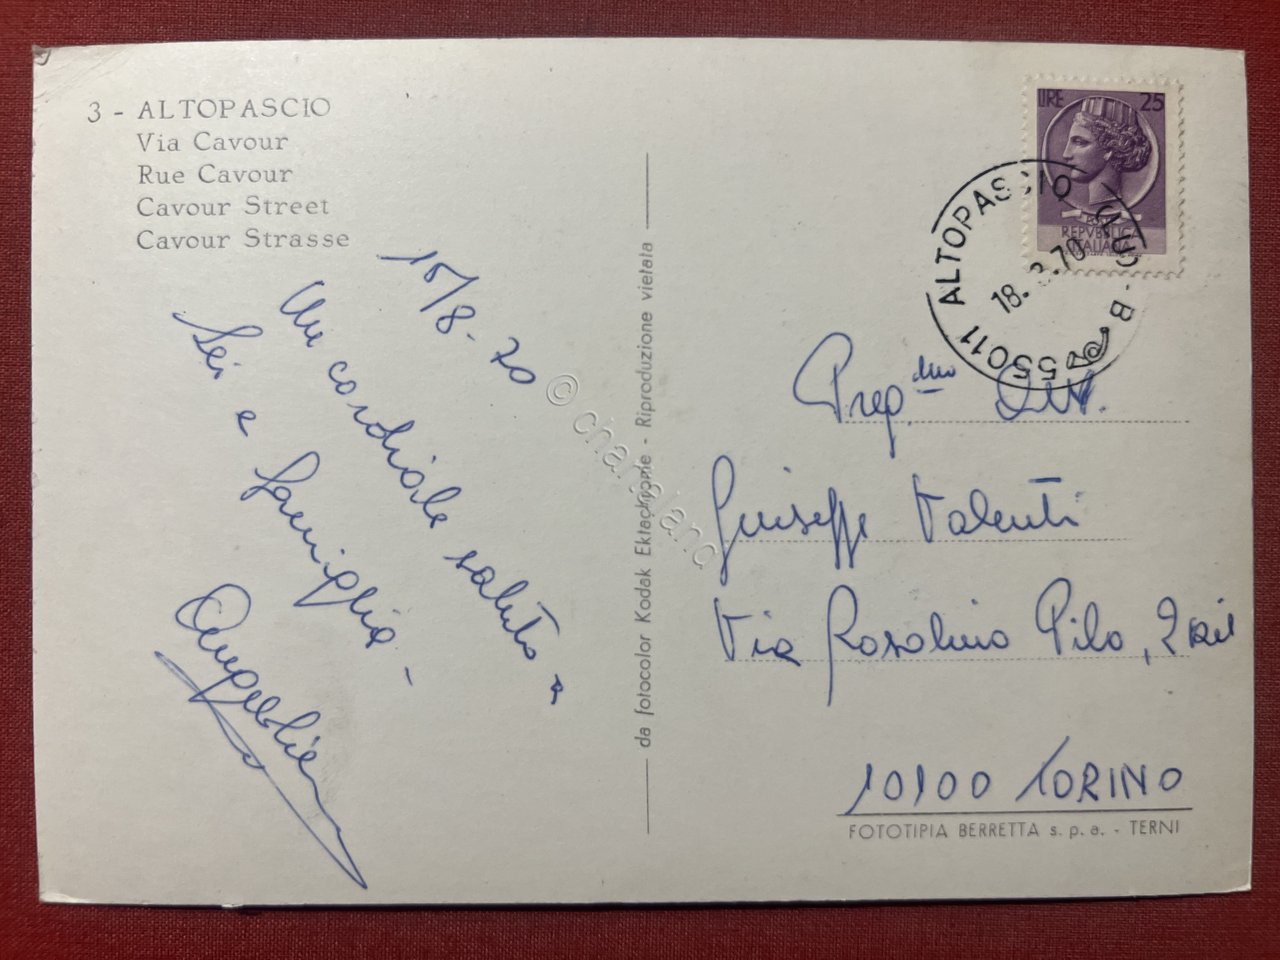 3 - ALTOPASCIO
Via Cavour
Rue Cavour
Cavour Street
Cavour Strasse
15/8-70
Un cordiale saluto a
Lei e famiglia -
da fotocolor Kodak Ektachrome - Riproduzione vietata
LIRE 25
POSTE
REPVBBLICA
ITALIANA
55011 ALTOPASCIO (LUC
B
18. 8.70
Prep.mo
Giuseppe Valenti
Via Rosolino Pilo, 2
10100 TORINO
FOTOTIPIA BERRETTA s.p.a. - TERNI